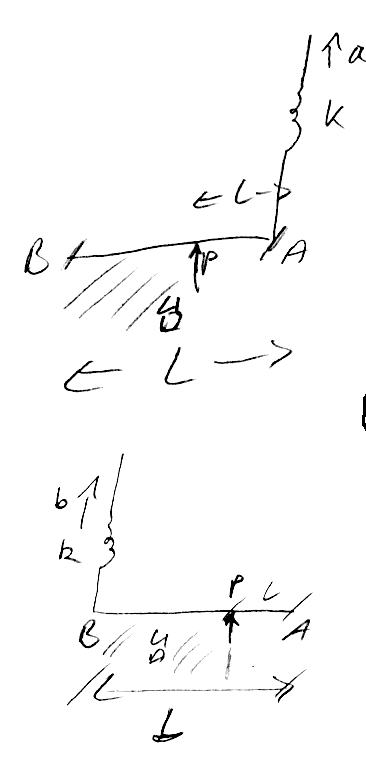 a
K
L
B
P
A
L
b
k
P
L
B
A
L